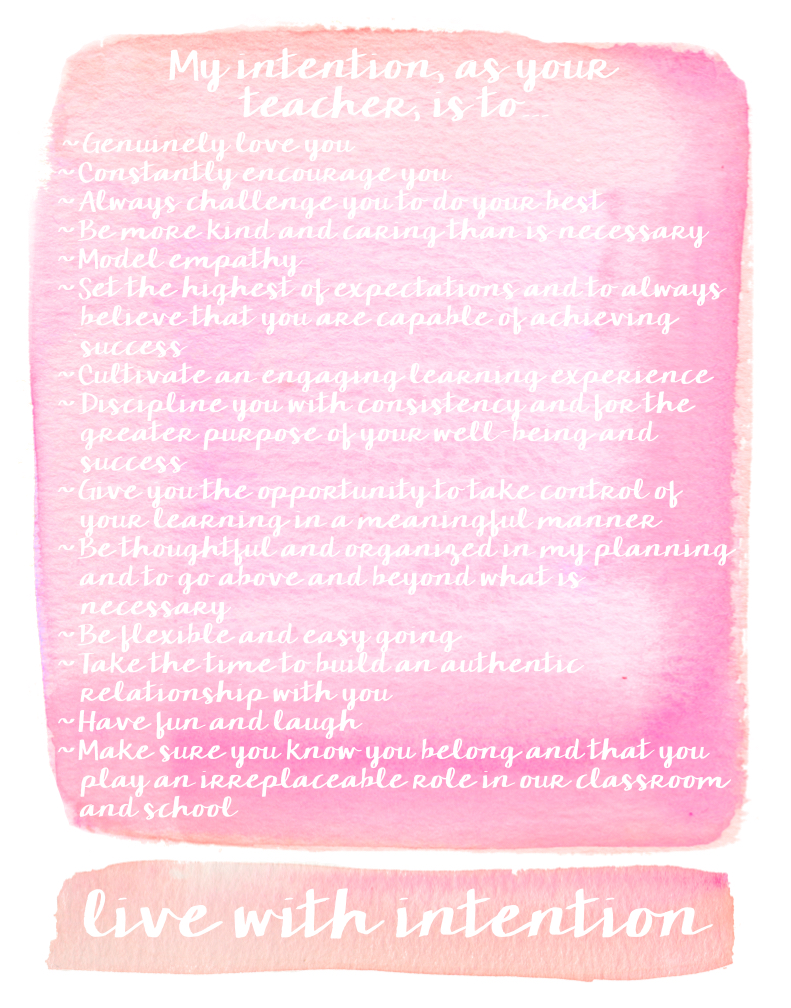 My intention, as your
teacher, is to...
~Genuinely love you
~Constantly encourage you
~Always challenge you to do your best
~Be more kind and caring than is necessary
~Model empathy
~Set the highest of expectations and to always
believe that you are capable of achieving
success
~Cultivate an engaging learning experience
~Discipline you with consistency and for the
greater purpose of your well-being and
success
~Give you the opportunity to take control of
your learning in a meaningful manner
~Be thoughtful and organized in my planning
and to go above and beyond what is
necessary
~Be flexible and easy going
~Take the time to build an authentic
relationship with you
~Have fun and laugh
~Make sure you know you belong and that you
play an irreplaceable role in our classroom
and school
live with intention